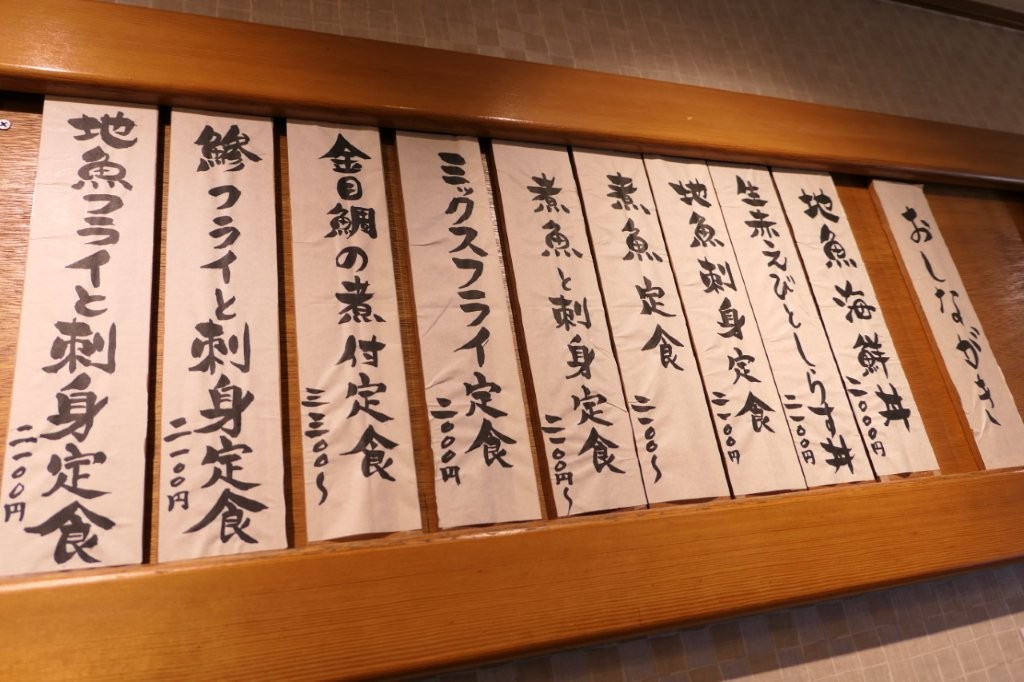 おしながき
地魚海鮮丼
二000円
生赤えびとしらす丼
二一00円
地魚刺身定食
二一00円
煮魚定食
二一00〜
煮魚と刺身定食
二一00円〜
ミックスフライ定食
二000円
金目鯛の煮付定食
三三00〜
鯵フライと刺身定食
二一00円
地魚フライと刺身定食
二一00円